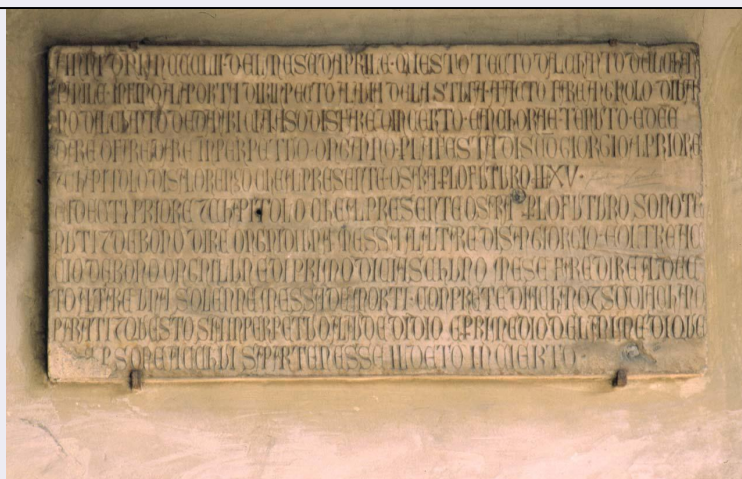 ANNI DNI MCCCLII DEL MESE DAPRILE QUESTO TECTO DAL CHANTO DEL CHA
PANILE INFINO A LA PORTA DIRINPECTO A LA VIA DELA STUFA A FACTO FARE AGNOLO
NO DAL CHANTO
DARE O FARE DARE IMPERPETUO OGNANNO P LA FESTA DI SCO GIORGIO AL PRIORE
7 CHAPITOLO DI SA LORENSO CHE AL PRESENTE O SARA P LO FUTURO II XV
E DECTI PRIORE 7 CHAPITOLO CHE AL PRESENTE O SARA P LO FUTURO SONO TE
NUTI 7 DEBONO DIRE OGNI DI UNA MESSA A LALTARE DI SAN GIORGIO E OLTRE AC
CIO DEBONO OGNI LUNEDI PRIMO DI CIASCHUNO MESE FARE DIRE AL DEC
TO ALTARE UNA SOLENNE MESSA DE MORTI CON PRETE DIACHANO 7 SODIACHANO
PARATI 7 QUESTO SIA IMPERPETUO A LAUDE DI DIO E P RIMEDIO DEL ANIME DI QUE
P SONE A CCUI S APARTENESSE IL DETO INCIERTO